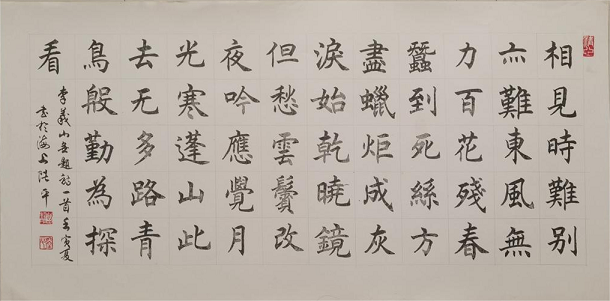 相見時難别
亦難東風無
力百花殘春
蠶到死絲方
盡蠟炬成灰
淚始乾曉鏡
但愁雲鬢改
夜吟應覺月
光寒蓬山此
去无多路青
鳥殷勤為探
看
李義山無題詩一首壬寅夏
書於海上陸平